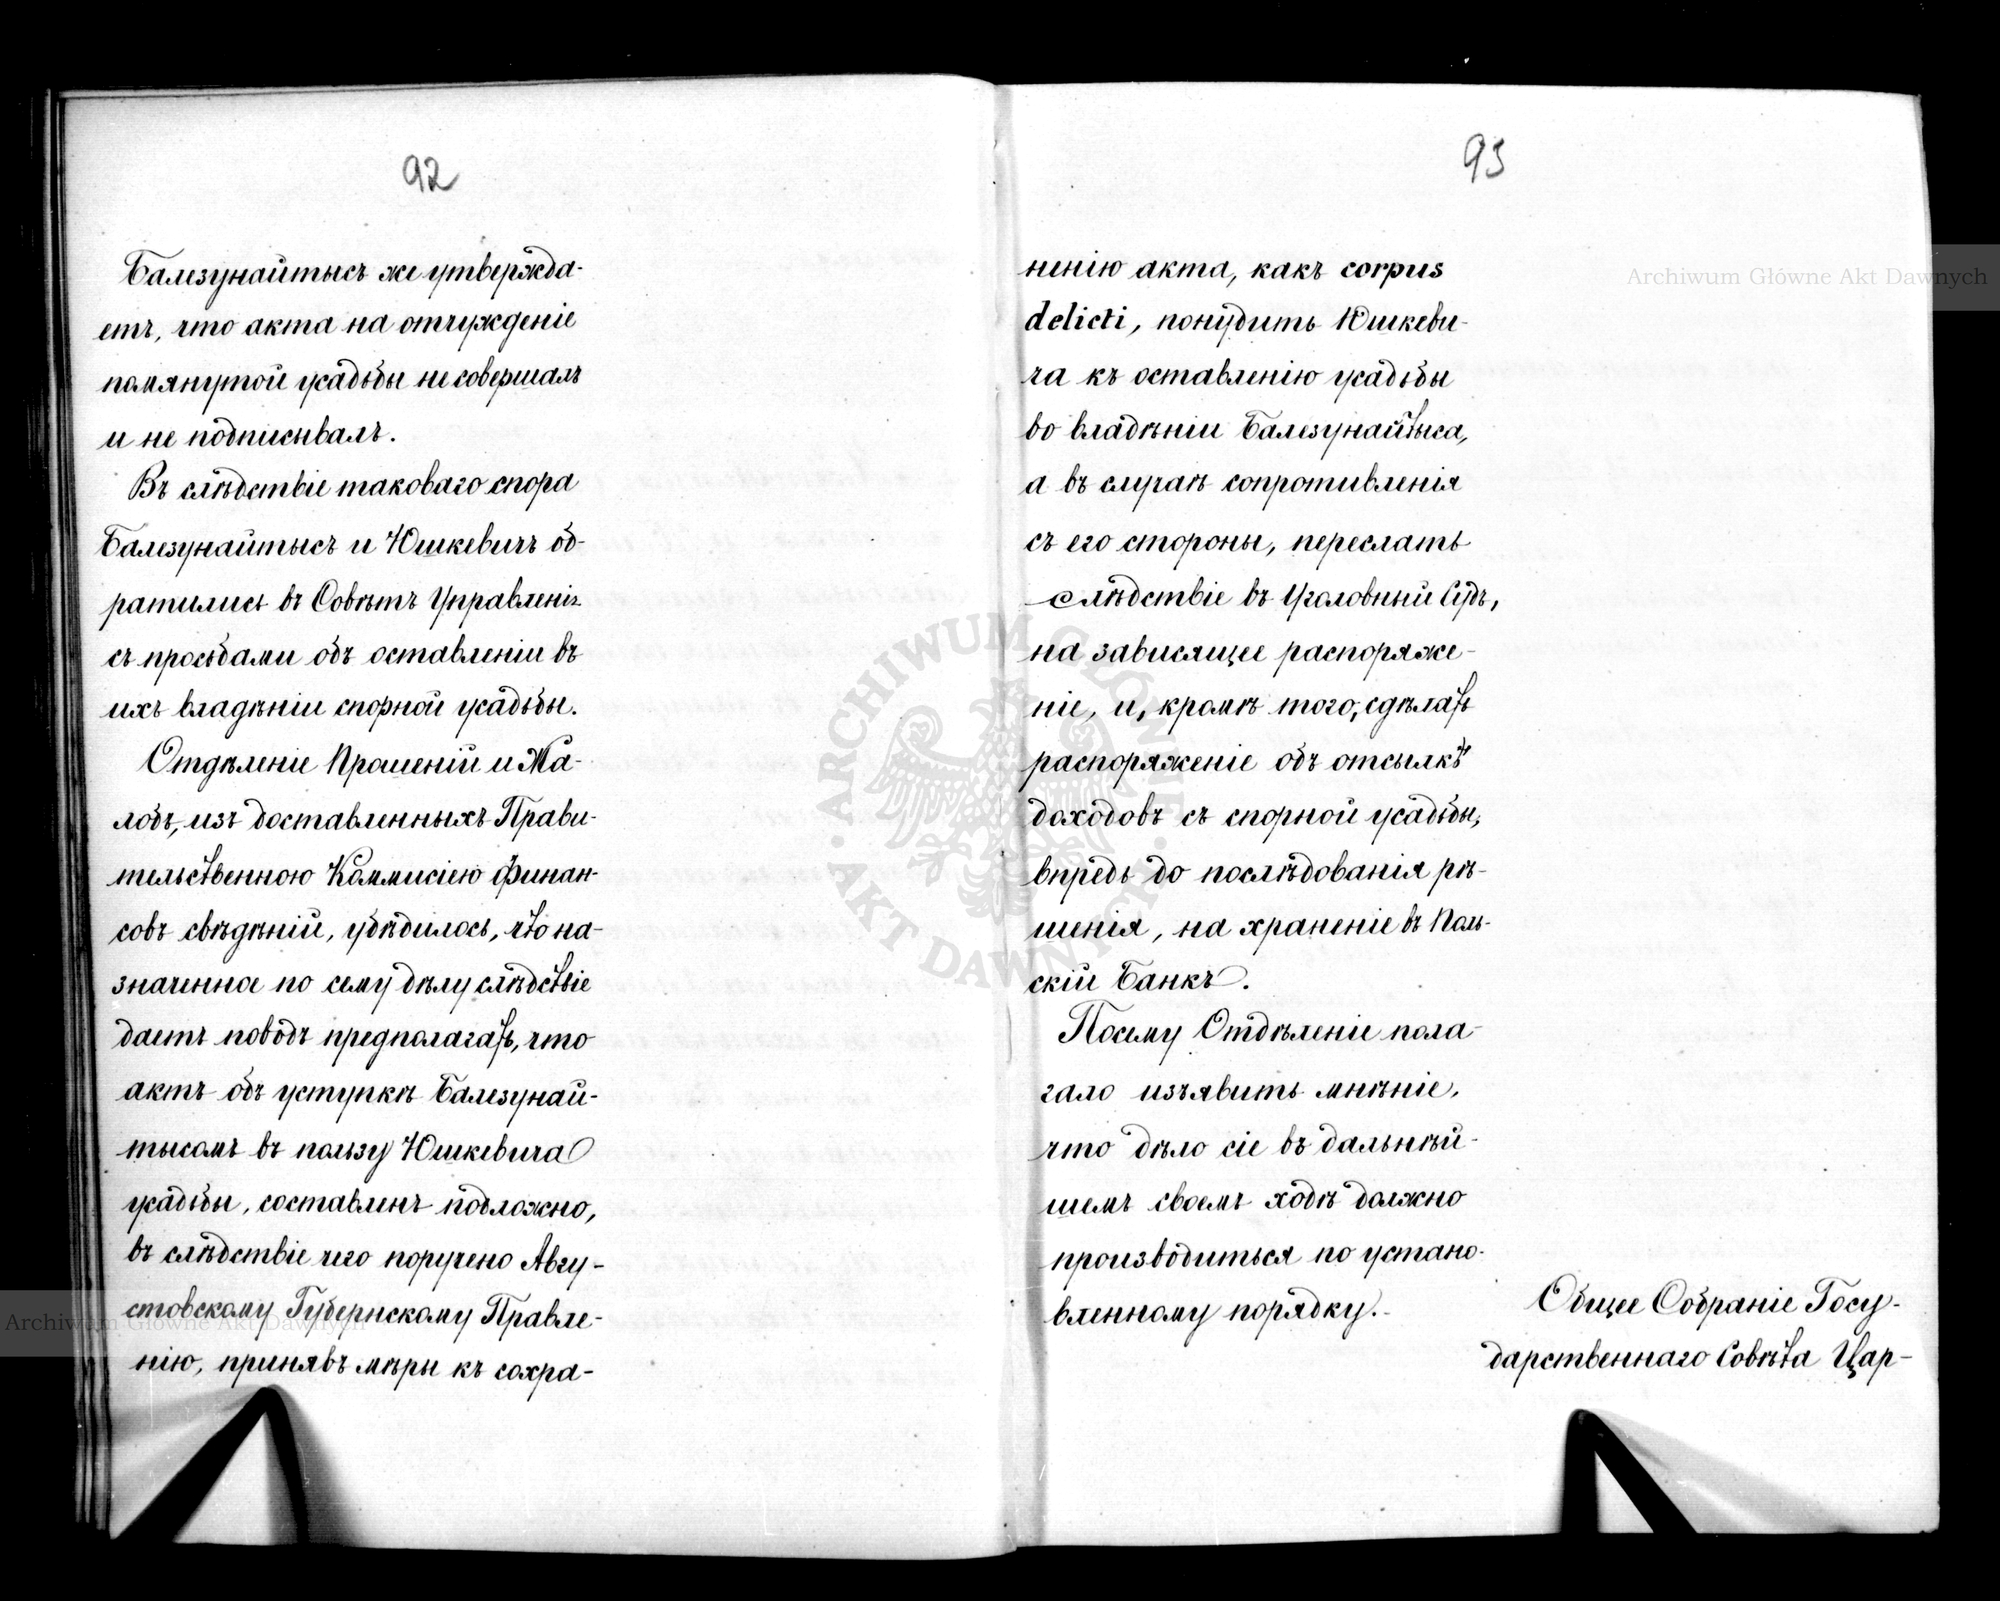 92
Балезунайтысъ же утвержда-
етъ, что акта на отчужденіе
помянутой усадьбы не совершалъ
и не подписывалъ.
Въ слѣдствіе таковаго спора
Балезунайтысъ и Юшкевичъ об-
ратились въ Совѣтъ Управленія
съ просьбами объ оставленіи въ
ихъ владѣніи спорной усадьбы.
Отдѣленіе Прошеній и Жа-
лобъ, изъ доставленныхъ Прави-
тельственною Коммисіею Финан-
совъ свѣдѣній, убѣдилось, что на-
значенное по сему дѣлу слѣдствіе
даетъ поводъ предполагать, что
актъ объ уступкѣ Балезунай-
тысомъ въ пользу Юшкевича
усадьбы, составленъ подложно,
въ слѣдствіе чего поручено Авгу-
стовскому Губернскому Правле-
нію, принявъ мѣры къ сохра-
93
ненію акта, какъ corpus
delicti, понудить Юшкеви-
ча къ оставленію усадьбы
во владѣніи Балезунайтыса,
а въ случаѣ сопротивленія
съ его стороны, переслать
слѣдствіе въ Уголовный Судъ,
на зависящее распоряже-
ніе, и, кромѣ того, сдѣлать
распоряженіе объ отсылкѣ
доходовъ съ спорной усадьбы,
впредь до послѣдованія рѣ-
шенія, на храненіе въ Поль-
скій Банкъ.
Посему Отдѣленіе пола-
гало изъявить мнѣніе,
что дѣло сіе въ дальнѣй-
шемъ своемъ ходѣ должно
производиться по устано-
вленному порядку.
Общее Собраніе Госу-
дарственнаго Совѣта Цар-
Archiwum Główne Akt Dawnych
Archiwum Główne Akt Dawnych
ARCHIWUM GŁÓWNE · AKT DAWNYCH ·